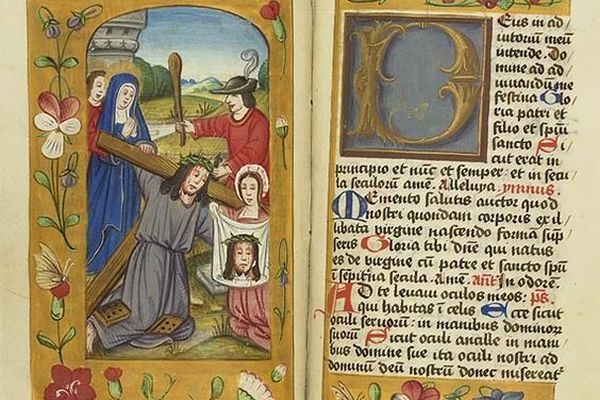 Deus in ad/
iutorium meū
intende. Do
mine ad ad
iuuandū me
festina Glo
ria patri et
filio et spūi
sancto Si
cut erat in
principio et nūc et semper: et in secu
la seculorū amē. Alleluya. ymnus.
Memento salutis auctor quod
nostri quondam corporis ex il/
libata virgine nascendo formam sūp
seris Gloria tibi dn̄e qui natus
es de virgine cū patre et sancto spūi
in sēpitna secula. Amē. Ant̄ In odorem.
Ad te leuaui oculos meos: ps.
qui habitas ī celis Ecce sicut
oculi seruorū: in manibus dominor
suorū Sicut oculi ancille in mani
bus domine sue ita oculi nostri ad
dominū deū nostrū donec misereat